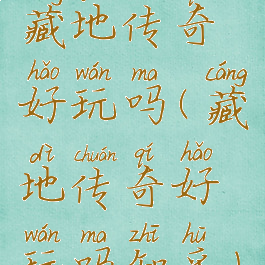 藏地传奇
hǎo wán ma cáng
好玩吗(藏
dì chuán qí hǎo
地传奇好
wán ma zhī hū
玩吗知乎)